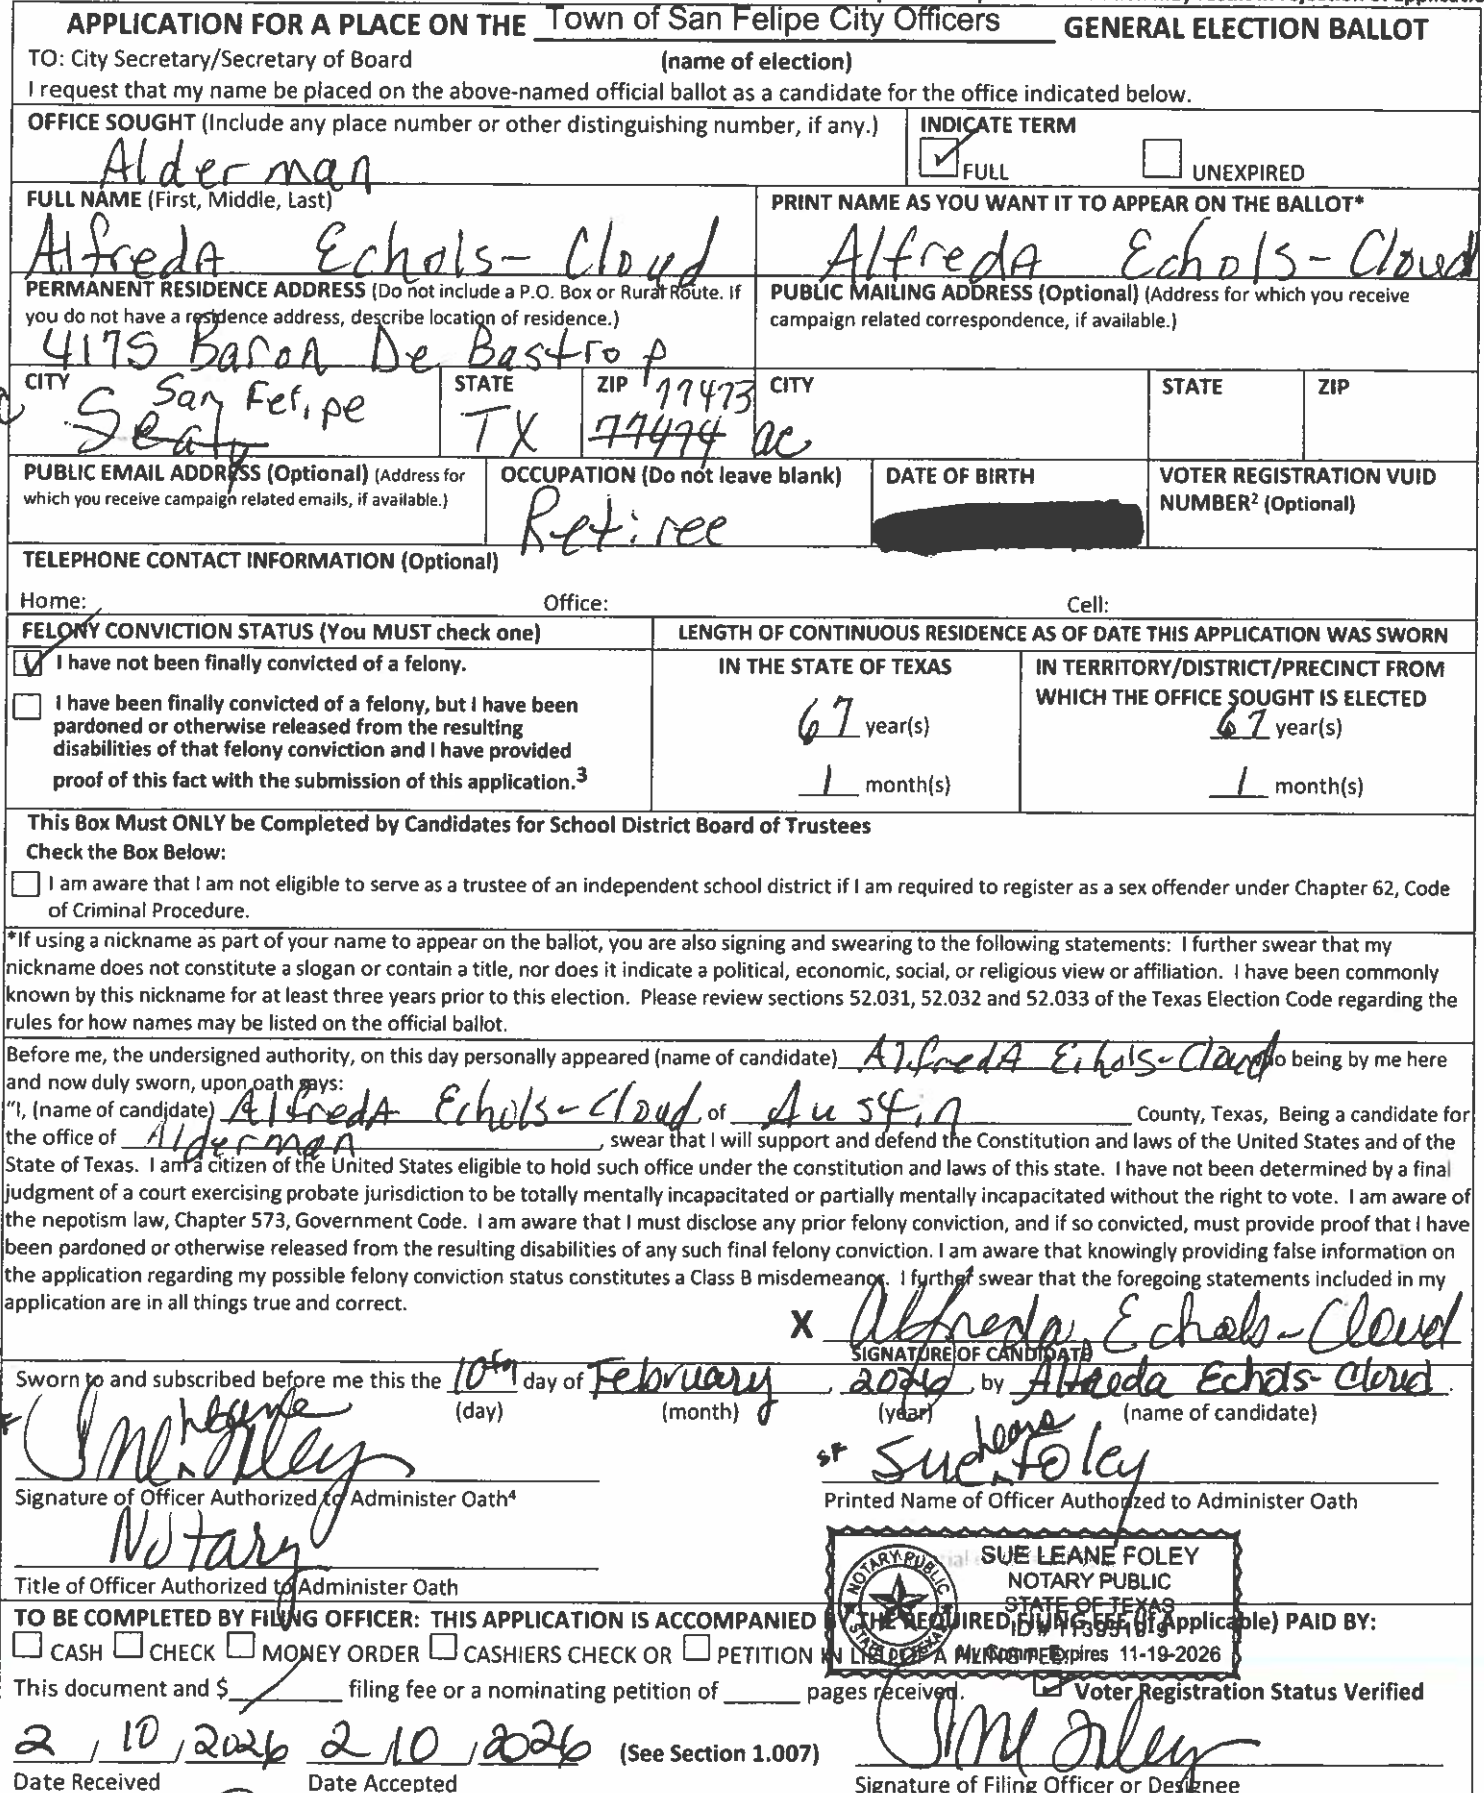 APPLICATION FOR A PLACE ON THE Town of San Felipe City Officers GENERAL ELECTION BALLOT
TO: City Secretary/Secretary of Board (name of election)
I request that my name be placed on the above-named official ballot as a candidate for the office indicated below.
OFFICE SOUGHT (Include any place number or other distinguishing number, if any.) INDICATE TERM
Alderman FULL UNEXPIRED
FULL NAME (First, Middle, Last) PRINT NAME AS YOU WANT IT TO APPEAR ON THE BALLOT*
AlfredA Echols-Cloud AlfredA Echols-Cloud
PERMANENT RESIDENCE ADDRESS (Do not include a P.O. Box or Rural Route. If PUBLIC MAILING ADDRESS (Optional) (Address for which you receive
you do not have a residence address, describe location of residence.) campaign related correspondence, if available.)
4175 Baron De Bastrop
CITY San Felipe STATE ZIP 77473 CITY STATE ZIP
Sealy TX 77474 ac
PUBLIC EMAIL ADDRESS (Optional) (Address for OCCUPATION (Do not leave blank) DATE OF BIRTH VOTER REGISTRATION VUID
which you receive campaign related emails, if available.) NUMBER² (Optional)
Retiree
TELEPHONE CONTACT INFORMATION (Optional)
Home: Office: Cell:
FELONY CONVICTION STATUS (You MUST check one) LENGTH OF CONTINUOUS RESIDENCE AS OF DATE THIS APPLICATION WAS SWORN
I have not been finally convicted of a felony. IN THE STATE OF TEXAS IN TERRITORY/DISTRICT/PRECINCT FROM
WHICH THE OFFICE SOUGHT IS ELECTED
I have been finally convicted of a felony, but I have been
pardoned or otherwise released from the resulting 67 year(s) 67 year(s)
disabilities of that felony conviction and I have provided
proof of this fact with the submission of this application.³ 1 month(s) 1 month(s)
This Box Must ONLY be Completed by Candidates for School District Board of Trustees
Check the Box Below:
I am aware that I am not eligible to serve as a trustee of an independent school district if I am required to register as a sex offender under Chapter 62, Code
of Criminal Procedure.
*If using a nickname as part of your name to appear on the ballot, you are also signing and swearing to the following statements: I further swear that my
nickname does not constitute a slogan or contain a title, nor does it indicate a political, economic, social, or religious view or affiliation. I have been commonly
known by this nickname for at least three years prior to this election. Please review sections 52.031, 52.032 and 52.033 of the Texas Election Code regarding the
rules for how names may be listed on the official ballot.
Before me, the undersigned authority, on this day personally appeared (name of candidate) AlfredA Echols-Cloud who being by me here
and now duly sworn, upon oath says:
"I, (name of candidate) AlfredA Echols-Cloud, of Austin County, Texas, Being a candidate for
the office of Alderman, swear that I will support and defend the Constitution and laws of the United States and of the
State of Texas. I am a citizen of the United States eligible to hold such office under the constitution and laws of this state. I have not been determined by a final
judgment of a court exercising probate jurisdiction to be totally mentally incapacitated or partially mentally incapacitated without the right to vote. I am aware of
the nepotism law, Chapter 573, Government Code. I am aware that I must disclose any prior felony conviction, and if so convicted, must provide proof that I have
been pardoned or otherwise released from the resulting disabilities of any such final felony conviction. I am aware that knowingly providing false information on
the application regarding my possible felony conviction status constitutes a Class B misdemeanor. I further swear that the foregoing statements included in my
application are in all things true and correct.
X Alfreda Echols-Cloud
SIGNATURE OF CANDIDATE
Sworn to and subscribed before me this the 10th day of February, 2026, by Alfreda Echols-Cloud.
(day) (month) (year) (name of candidate)
Sue Leane Foley SF Sue Leane Foley
Signature of Officer Authorized to Administer Oath⁴ Printed Name of Officer Authorized to Administer Oath
Notary
Title of Officer Authorized to Administer Oath
SUE LEANE FOLEY
NOTARY PUBLIC
STATE OF TEXAS
My Comm. Expires 11-19-2026
TO BE COMPLETED BY FILING OFFICER: THIS APPLICATION IS ACCOMPANIED BY THE REQUIRED FILING FEE (If Applicable) PAID BY:
CASH CHECK MONEY ORDER CASHIERS CHECK OR PETITION IN LIEU OF A FILING FEE.
This document and $ filing fee or a nominating petition of pages received. Voter Registration Status Verified
2, 10, 2026 2/10, 2026 (See Section 1.007) Sue Foley
Date Received Date Accepted Signature of Filing Officer or Designee